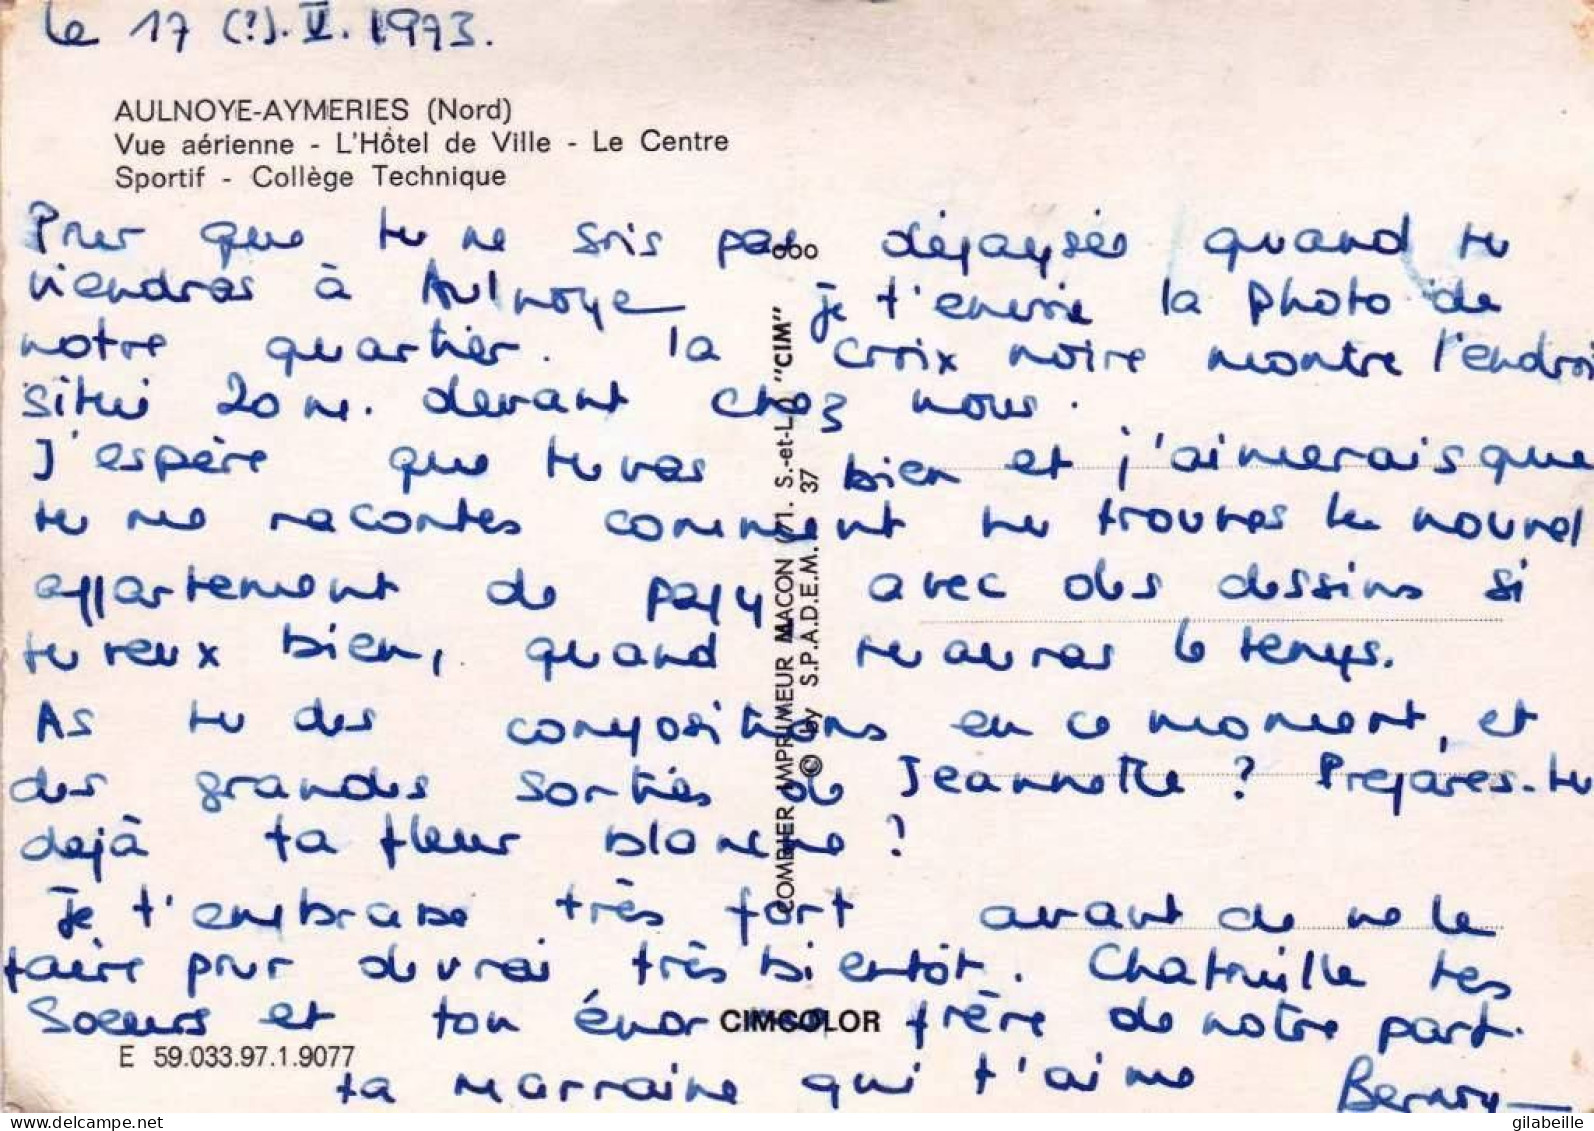 le 17 (?). V. 1973.
AULNOYE-AYMERIES (Nord)
Vue aérienne - L'Hôtel de Ville - Le Centre
Sportif - Collège Technique
Pour que tu ne sois pas dépaysée quand tu
viendras à Aulnoye je t'envoie la photo de
notre quartier. la croix noire montre l'endroi
situé 20 m. devant chez nous.
J'espère que tu vas bien et j'aimerais que
tu me racontes comment tu trouves le nouvel
appartement de papy avec des dessins si
tu veux bien, quand tu auras le temps.
As tu des compositions en ce moment, et
des grandes sorties de Jeannette ? Prépares-tu
dejà ta fleur blanche ?
Je t'embrasse très fort avant de ne le
faire pour de vrai très bientôt. Chatouille tes
Soeurs et ton énorme frère de notre part.
ta marraine qui t'aime
COMBIER IMPRIMEUR MACON (71. S.-et-L.) "CIM"
© by S.P.A.D.E.M. 37
CIMCOLOR
E 59.033.97.1.9077
www.delcampe.net
gilabeille